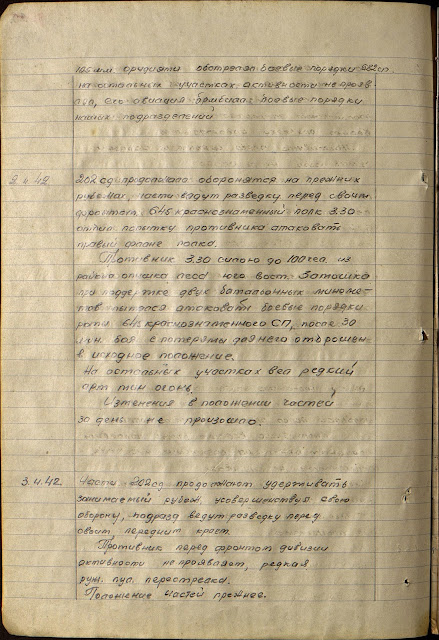 105 мм орудиями обстрелял боевые порядки 682 сп
на остальных участках активности не прояв-
лял, его авиация бомбила боевые порядки
наших подразделений.
2.4.42 202 сд продолжала обороняться на прежних
рубежах, части ведут разведку перед своим
фронтом. 645 краснознаменный полк 3.30
отбил попытку противника атаковать
правый фланг полка.
Противник 3.30 силою до 100 чел. из
района опушка леса юго вост.
при поддержке двух батальонных миноме-
тов пытался атаковать боевые порядки
роты 645 краснознаменного СП, после 30
мин. боя с потерями для него отброшен
в исходное положение.
На остальных участках вел редкий
арт мин огонь.
Изменения в положении частей
за день не произошло.
3.4.42. Части 202 сд продолжают удерживать
занимаемый рубеж, усовершенствуя свою
оборону, подразд ведут разведку перед
своим передним краем.
Противник перед фронтом дивизии
активности не проявляет, редкая
руж. пул. перестрелка.
Положение частей прежнее.